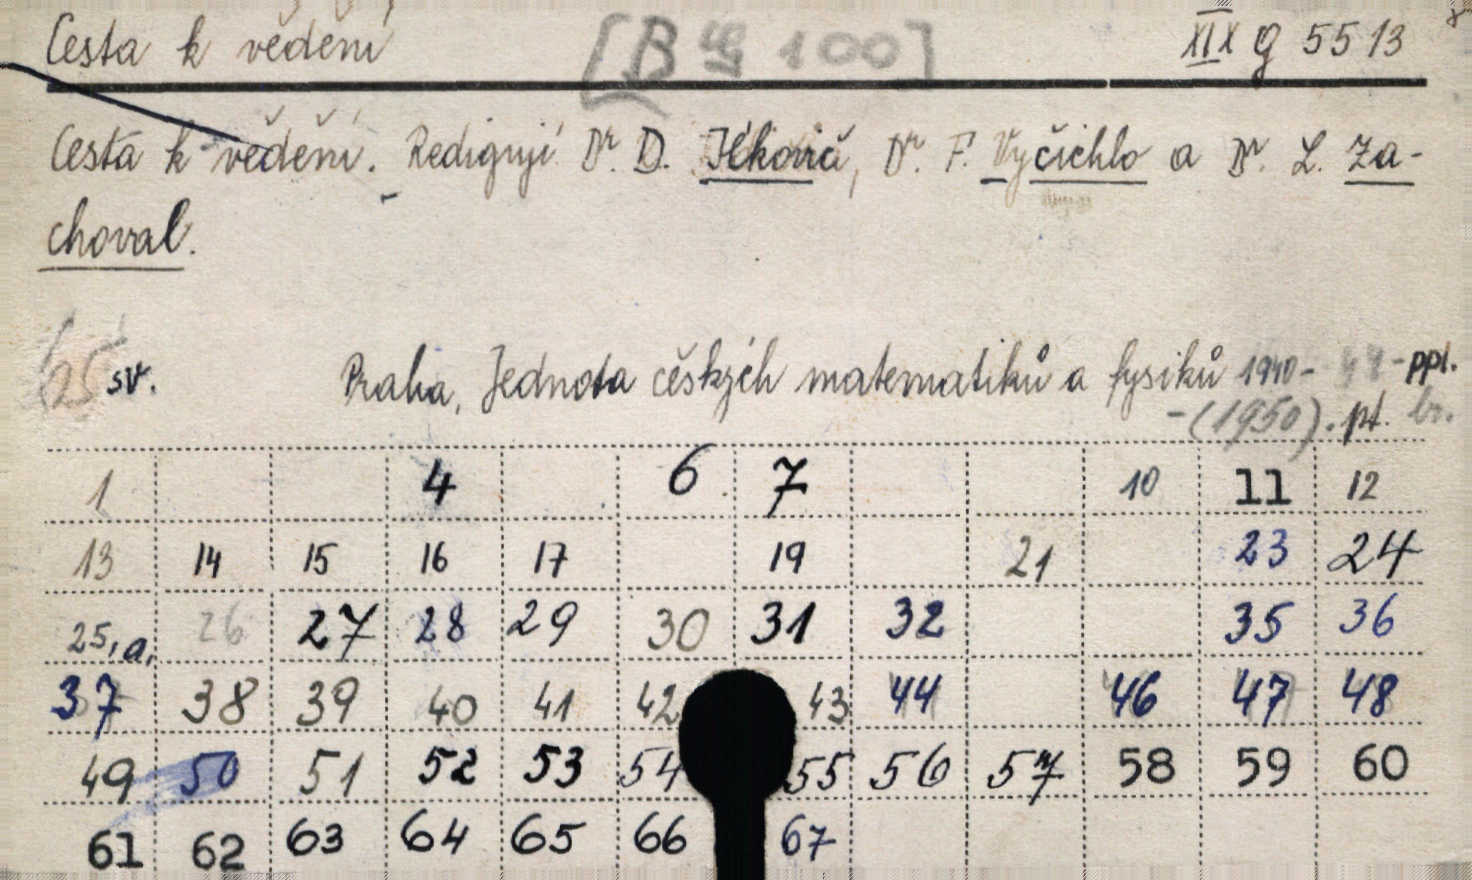 Cesta k vědění [B 100] XIX g 5513
Cesta k vědění. Redigují Dr. D. Ilkovič, Dr. F. Vyčichlo a Dr. L. Za-
choval.
sv. Praha, Jednota českých matematiků a fysiků 1940- -ppl.
-(1950). pt. br.
1 4 6 7 10 11 12
13 14 15 16 17 19 21 23 24
25, a, 26 27 28 29 30 31 32 35 36
37 38 39 40 41 42 43 44 46 47 48
49 50 51 52 53 54 55 56 57 58 59 60
61 62 63 64 65 66 67